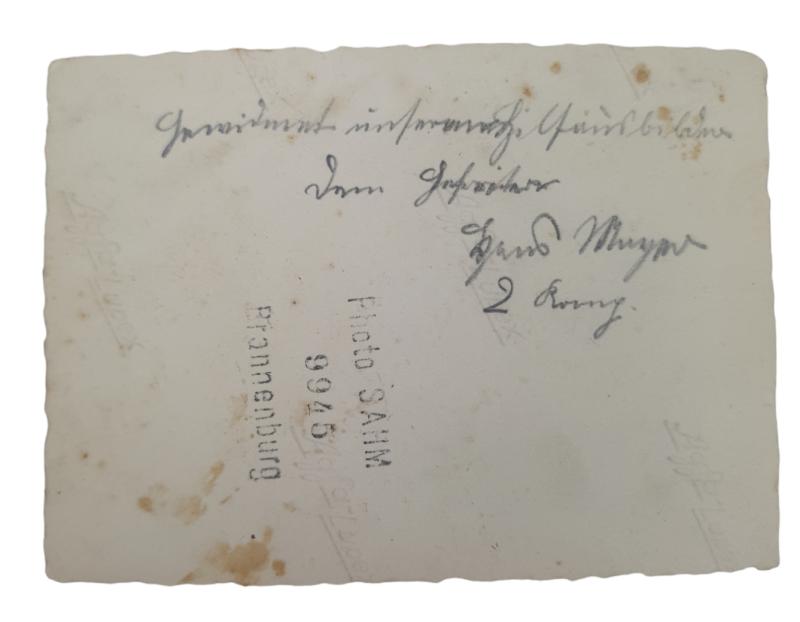 Gewidmet unserem Hilfausbilder
dem Gefreiten
Hans Mayer
2 Komp.
Photo SAHM
9945
Brannenburg